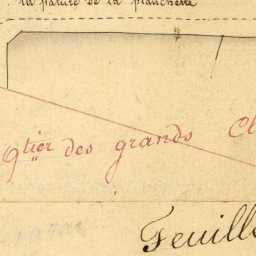 la nature de la planchette
Qtier des grands Cl
Feuille